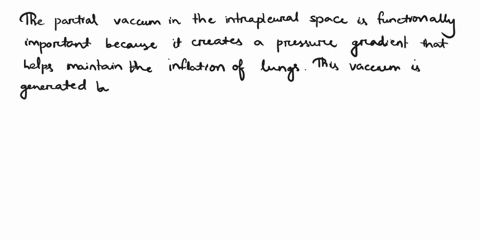 The partial vaccum in the intrapleural space is functionally
important because it creates a pressure gradient that
helps maintain the inflation of lungs. This vaccum is
generated b